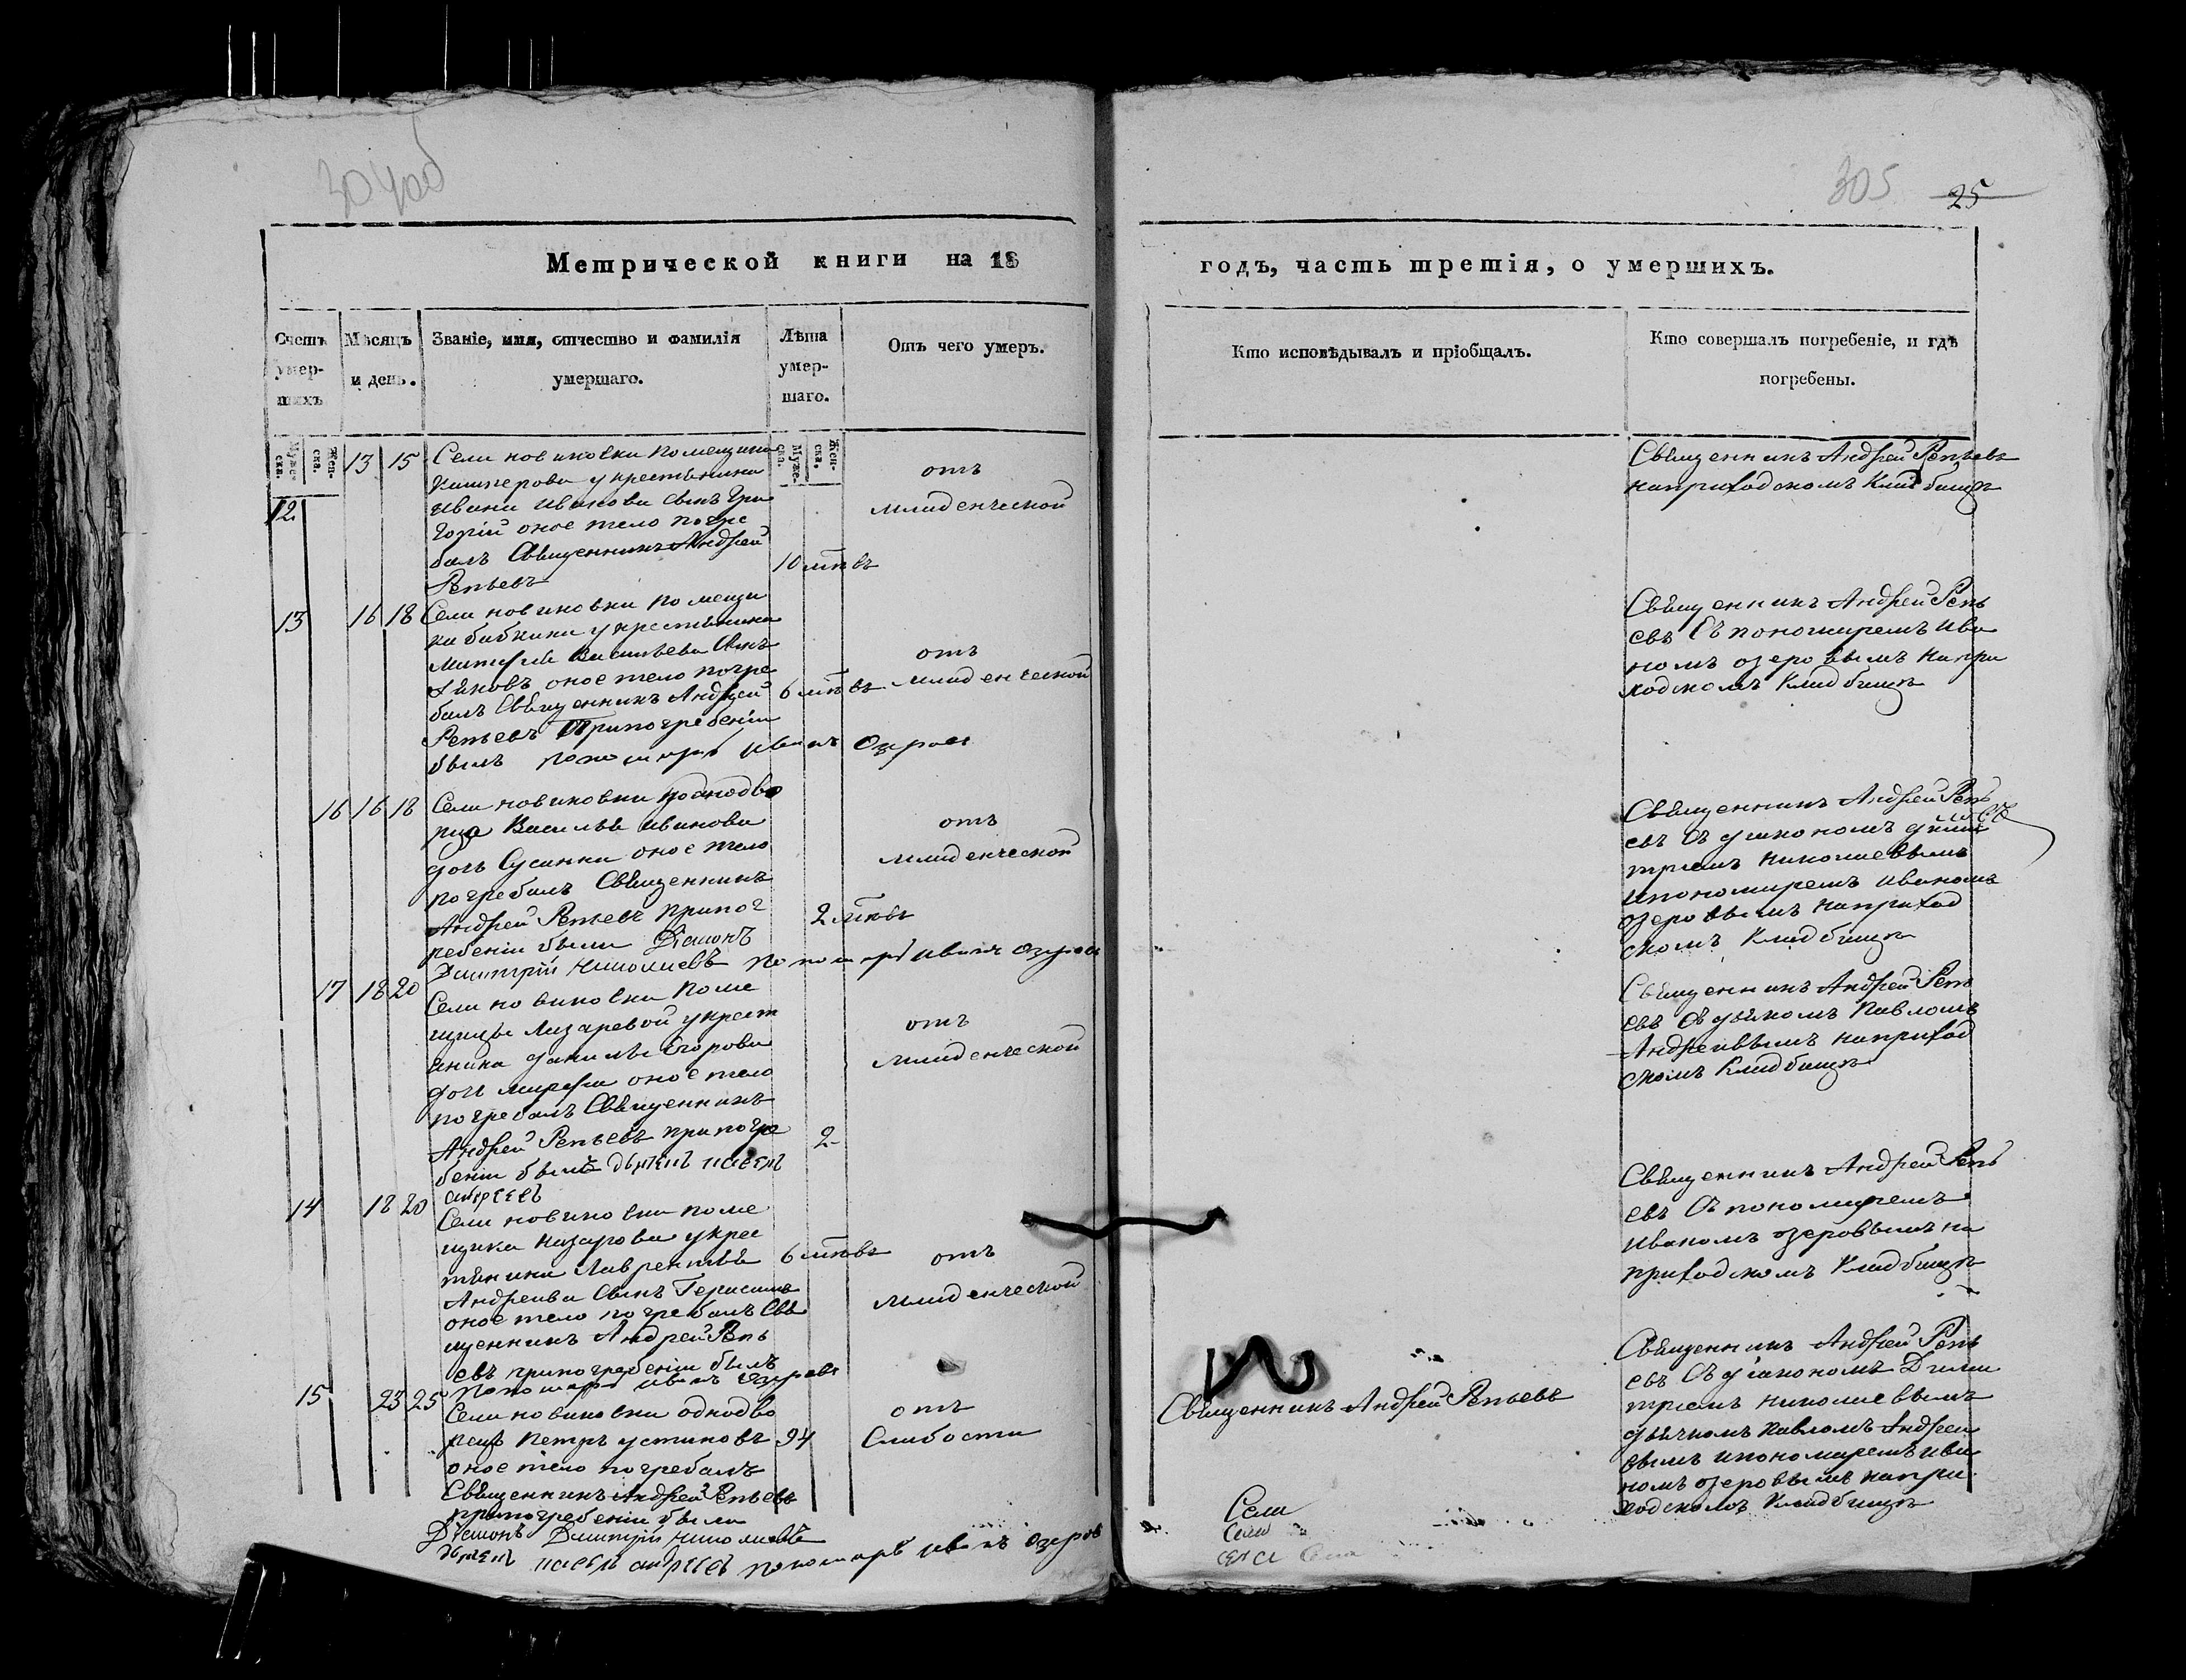 304об
305 25
Метрической книги на 18
годъ, часть третія, о умершихъ.
Счетъ умер-шихъ
Мѣсяцъ и день.
Званіе, имя, отчество и фамилія умершаго.
Лѣта умер-шаго.
Отъ чего умеръ.
Кто исповѣдывалъ и пріобщалъ.
Кто совершалъ погребеніе, и гдѣ погребены.
Муже-ска. Жен-ска.
Муже-ска. Жен-ска.
12 13 15
Села новиковки помещика
у крестьянина
ивана иванова сынъ Гри
горій оное тело погре
балъ Священникъ Андрей
Репьевъ
10
отъ
младенческой
Священникъ Андрей Репьевъ
наприходскомъ Кладбище
13 16 18
Села новиковки помещи
ка бабкина у крестьянина
Матфея Васильева Сынъ
Іяковъ оное тело погре
балъ Священникъ Андрей
Репьевъ При погребеніи
былъ пономарь иванъ Озеровъ
6
отъ
младенческой
Священникъ Андрей Репь
евъ Съ пономаремъ ива
номъ озеровымъ напри
ходскомъ Кладбище
16 16 18
Села новиковки уоднодво
рца Василья иванова
дочь оное тело
погребалъ Священникъ
Андрей Репьевъ припог
ребеніи были Діяконъ
Дмитрій Николаевъ пономарь иванъ озеровъ
2
отъ
младенческой
Священникъ Андрей Репь
евъ Съ дияконом
тріемъ Николаевымъ
ипономаремъ иваномъ
озеровымъ наприход
скомъ Кладбище
17 18 20
Села новиковки поме
щицы Лазаревой укрест
янина данилы егорова
дочь марфа оное тело
погребалъ Священникъ
Андрей Репьевъ припогре
беніи былъ дьячекъ павелъ
андреевъ
2
отъ
младенческой
Священникъ Андрей Репь
евъ Съ дьячкомъ Павломъ
Андреивымъ наприход
скомъ Кладбище
14 18 20
Села новиковки поме
щика назарова укрес
тянина Лаврентья
Андреива Сынъ Герасимъ
оное тело погребалъ Свя
щенникъ Андрей Репь
евъ припогребеніи былъ
пономарь иванъ озеровъ
6
отъ
младенческой
Священникъ Андрей Репь
евъ Съ пономаремъ
Иваномъ озеровымъ на
приходскомъ Кладбище
15 23 25
Села новиковки однодво
рецъ Петръ устиновъ
оное тело погребалъ
Священникъ Андрей Репьевъ
припогребеніи были
Діяконъ Дмитрій Николаевъ
дьячекъ павелъ андреевъ пономарь иванъ озеровъ
94
отъ
Слабости
Священникъ Андрей Репьевъ
Священникъ Андрей Репь
евъ Съ діякономъ Дими
тріемъ Николаевымъ
дьячкомъ Павломъ Андреи
вымъ ипономаремъ ива
номъ озеровымъ напри
ходскомъ Кладбище
Села
Села
села